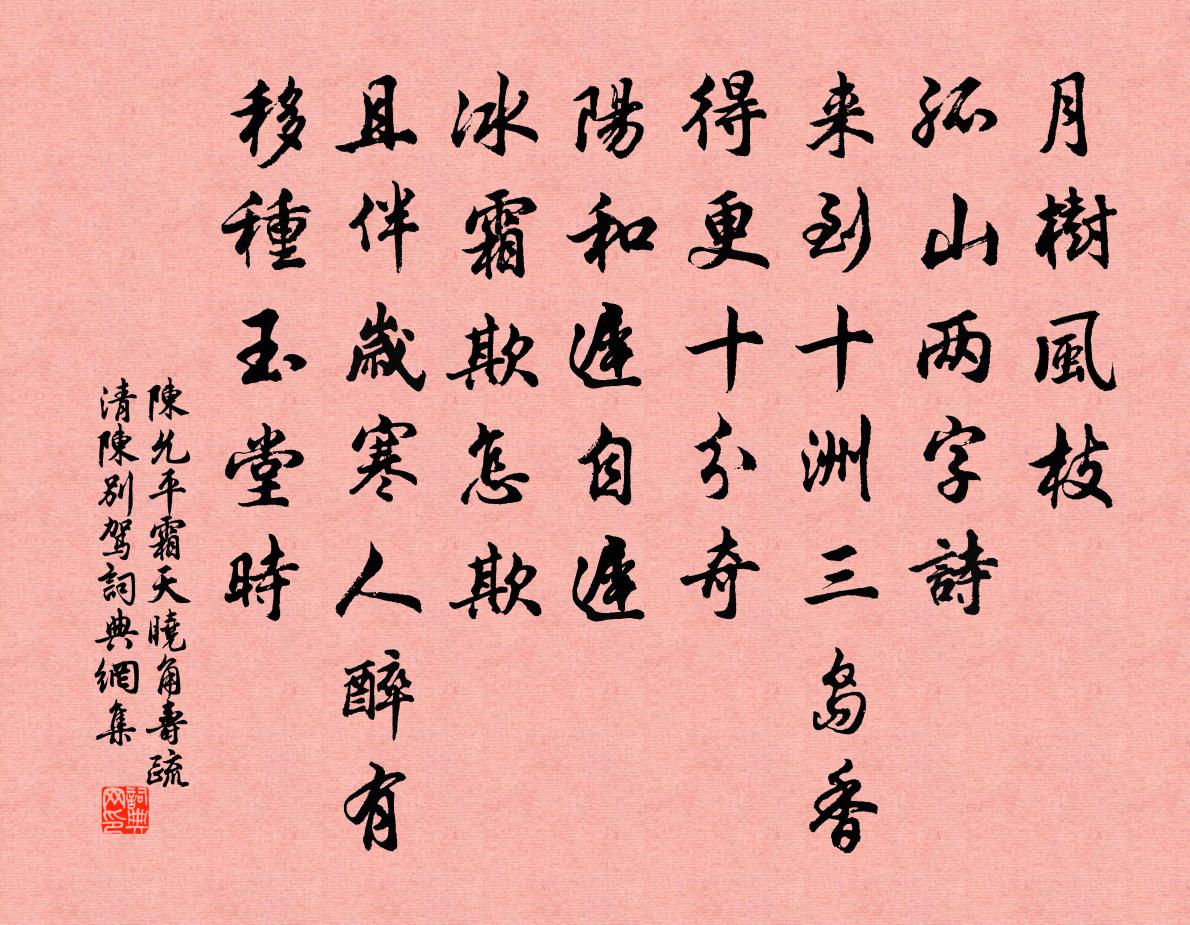 月樹風枝
孤山两字詩
来到十洲三島香
得更十分奇
陽和遲自遲
冰霜欺怎欺
且伴歲寒人醉有
移種玉堂時
陳允平霜天曉角壽疏
清陳別駕詞典網集
詞典网印